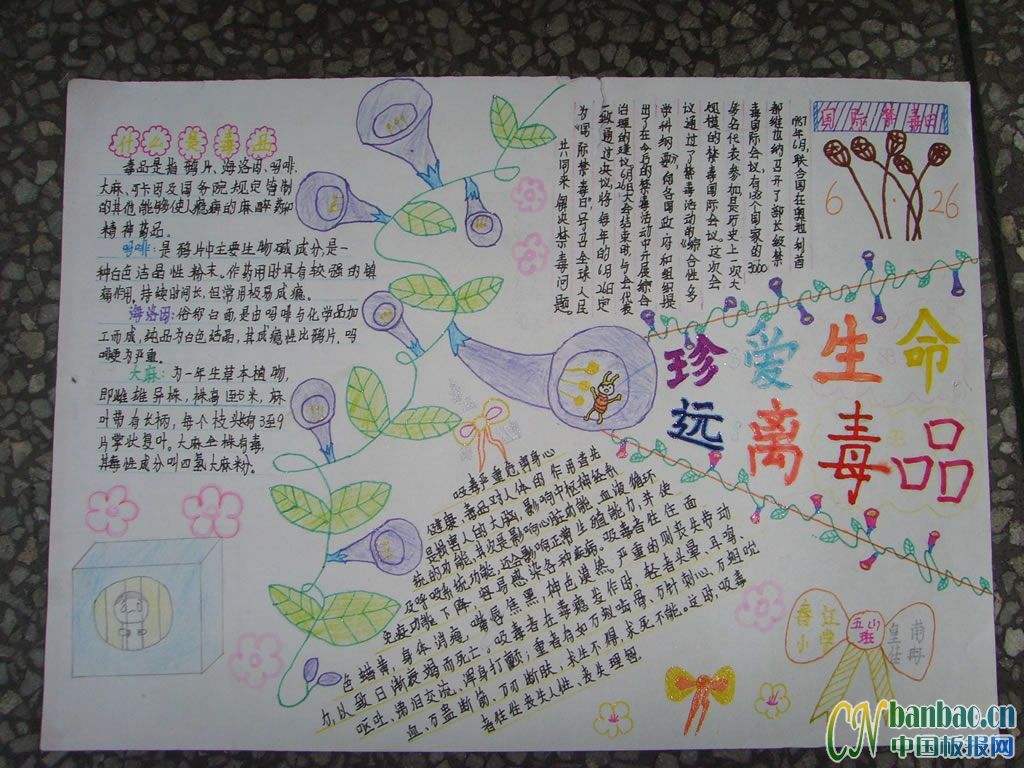 什么是毒品
毒品是指鸦片、海洛因、吗啡、
大麻、可卡因及国务院规定管制
的其他能够使人瘾癖的麻醉药和
精神药品。
吗啡:是鸦片中主要生物碱成分,是一
种白色洁晶性粉末。作药用时具有较强的镇
痛作用,持续时间长,但常用极易成瘾。
海洛因:俗称白面是由吗啡与化学品加
工而成,纯品为白色结晶,其成瘾性比鸦片、吗
啡更为严重。
大麻:为一年生草本植物,
即雌雄异株,株高1至5米,麻
叶带有长柄,每个枝头有3至9
片掌状复叶。大麻全株有毒,
其毒性成分叫四氢大麻粉。
国际禁毒日
6 . 26
1987年6月,联合国在奥地利首
都维也纳召开了部长级禁
毒国际会议,有138个国家的3000
多名代表参加是历史上一次大
规模的禁毒国际会议。这次会
议通过了禁毒活动的《综合性多
学科纲要》向各国政府和组织提
出了在今后的禁毒活动中开展综合
治理的建议。6月26日大会结束时,与会代表
一致通过决议将每年的6月26日定
为“国际禁毒日”,号召全球人民
共同来解决禁毒问题。
珍爱生命
远离毒品
吸毒严重危害身心
健康,毒品对人体的作用首先
是损害人的大脑,影响中枢神经系
统的功能,其次是影响心脏功能,血液循环
及呼吸系统功能,还会影响正常生殖能力,并使
免疫功能下降,极易感染各种疾病。吸毒者往往面
色蜡黄,身体消瘦,嘴唇焦黑,神色漠然,严重的则丧失劳动
力,以致日渐衰竭而死亡。吸毒者在毒瘾发作时,轻者头晕、耳鸣、
呕吐、涕泪交流、浑身打颤;重者有如万蚁啮骨、万针刺心、万蛆吮
血、万蛊断筋、万刃断肤,求生不得,求死不能。这时,吸毒
者往往丧失人性,丧失理智。
香山
江学
五山班
banbao.cn
CN中国板报网